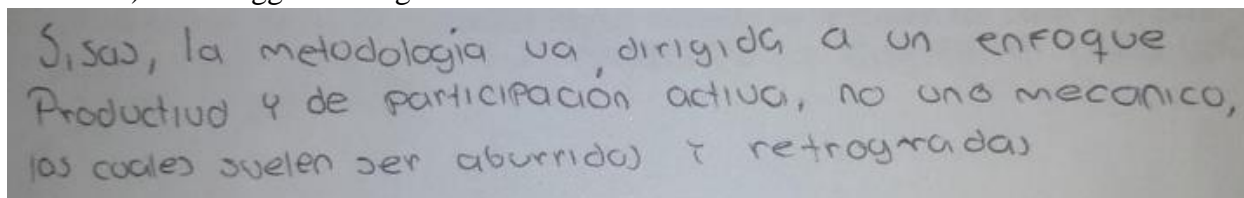 Sisas, la metodologia va dirigida a un enfoque
Productivo y de participación activa, no uno mecanico,
los cuales suelen ser aburridos y retrogradas